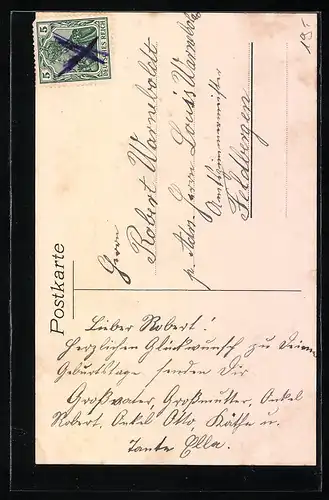 Postkarte
5 DEUTSCHES REICH 5
Herrn
Robert Warneboldt
p. Adr. Herrn Louis Warneboldt
Feldbergen
Lieber Robert!
Herzlichen Glückwunsch zu Deinem
Geburtstage senden Dir
Großvater, Großmutter, Onkel
Robert, Onkel Otto, Käthe u.
Tante Ella.
19-